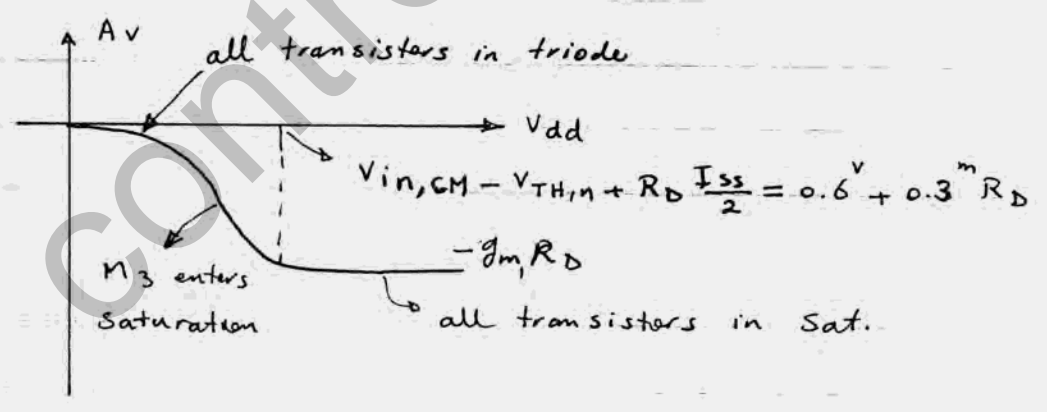 Av
all transistors in triode
Vdd
Vin,CM - VTH,n + RD Iss/2 = 0.6v + 0.3m RD
-gm,RD
M3 enters
saturation
all transistors in Sat.